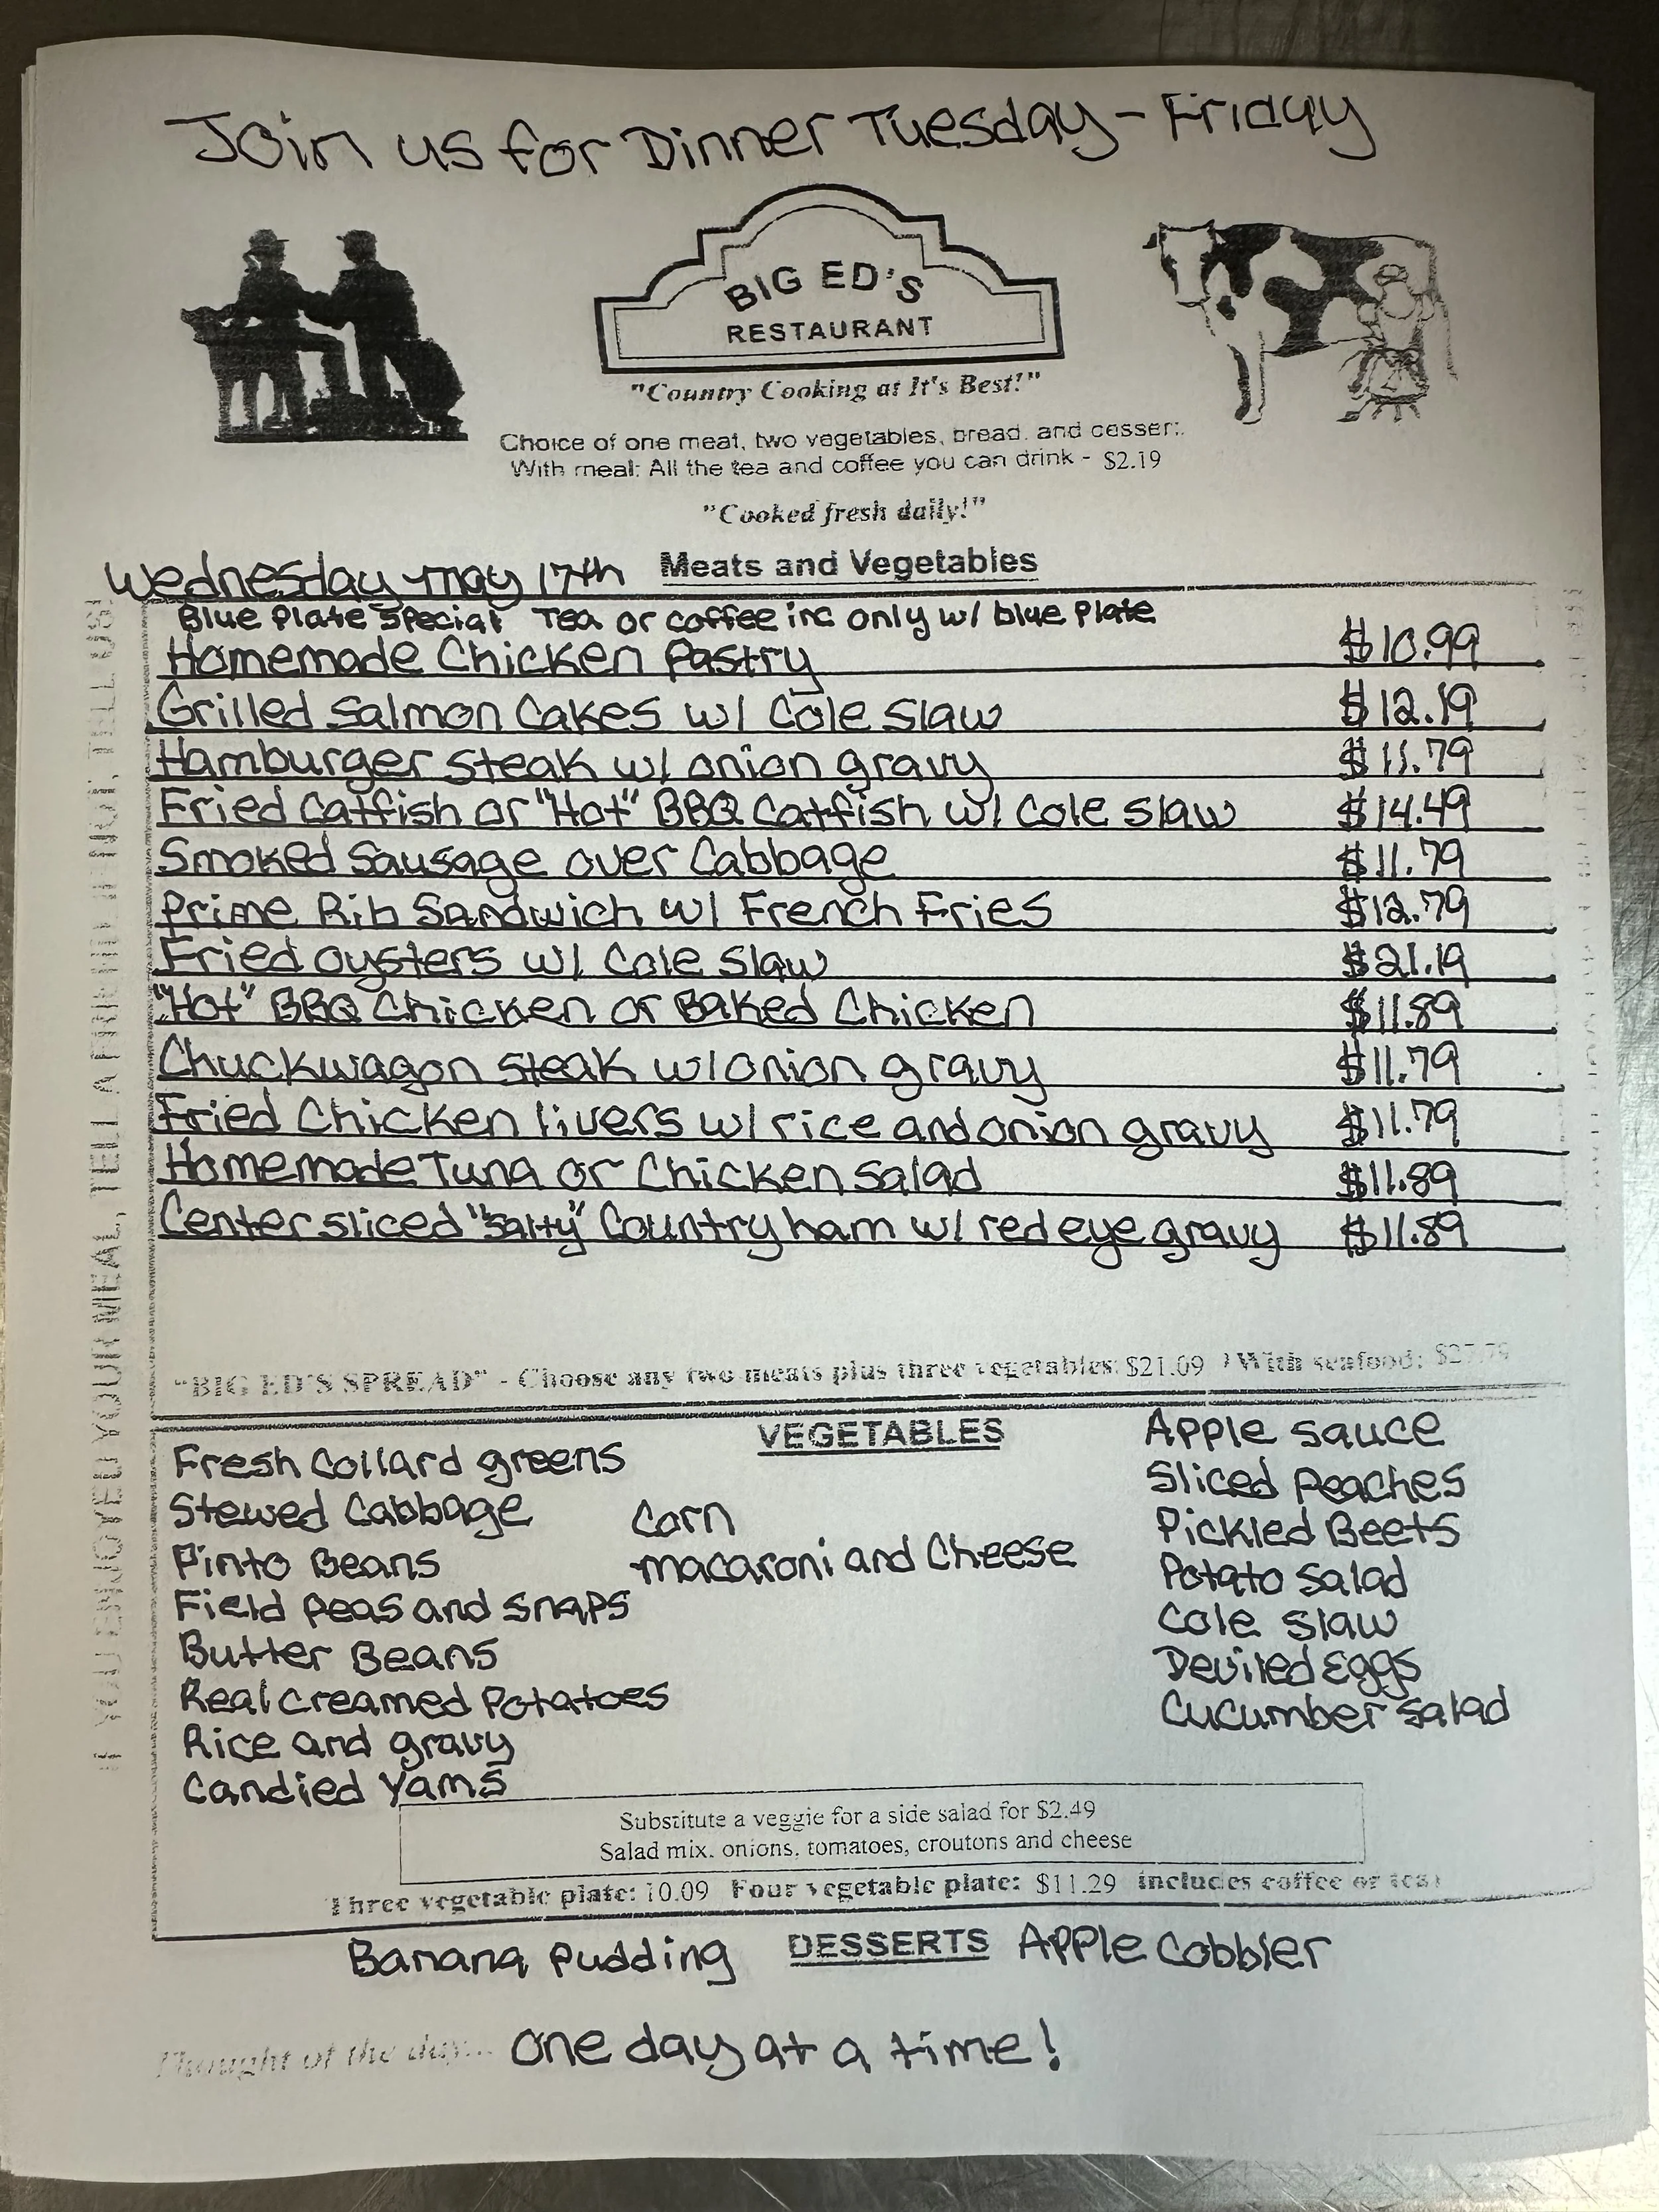 Join us for Dinner Tuesday - Friday
BIG ED'S
RESTAURANT
"Country Cooking at It's Best!"
Choice of one meat, two vegetables, bread, and dessert.
With meal: All the tea and coffee you can drink - $2.19
"Cooked fresh daily!"
Wednesday may 17th Meats and Vegetables
Blue Plate Special Tea or coffee inc only w/ blue Plate
Homemade Chicken Pastry $10.99
Grilled Salmon Cakes w/ Cole Slaw $12.19
Hamburger Steak w/ onion gravy $11.79
Fried Catfish or "Hot" BBQ Catfish w/ Cole Slaw $14.49
Smoked Sausage over Cabbage $11.79
Prime Rib Sandwich w/ French Fries $12.79
Fried oysters w/ Cole Slaw $21.19
"Hot" BBQ Chicken or Baked Chicken $11.89
Chuckwagon Steak w/ onion gravy $11.79
Fried Chicken livers w/ rice and onion gravy $11.79
Homemade Tuna or Chicken Salad $11.89
Center sliced "Salty" Country ham w/ red eye gravy $11.89
"BIG ED'S SPREAD" - Choose any two meats plus three vegetables: $21.09 ) With seafood:
VEGETABLES
Fresh Collard greens
Stewed Cabbage
Pinto Beans
Field Peas and Snaps
Butter Beans
Real Creamed Potatoes
Rice and gravy
Candied Yams
Corn
macaroni and Cheese
Apple Sauce
Sliced Peaches
Pickled Beets
Potato Salad
Cole Slaw
Deviled Eggs
Cucumber Salad
Substitute a veggie for a side salad for $2.49
Salad mix, onions, tomatoes, croutons and cheese
Three vegetable plate: 10.09 Four vegetable plate: $11.29 includes coffee or tea)
Banana Pudding DESSERTS Apple Cobbler
Thought of the day... One day at a time!
IF YOU ENJOYED YOUR MEAL, TELL A FRIEND, IF NOT, TELL US!